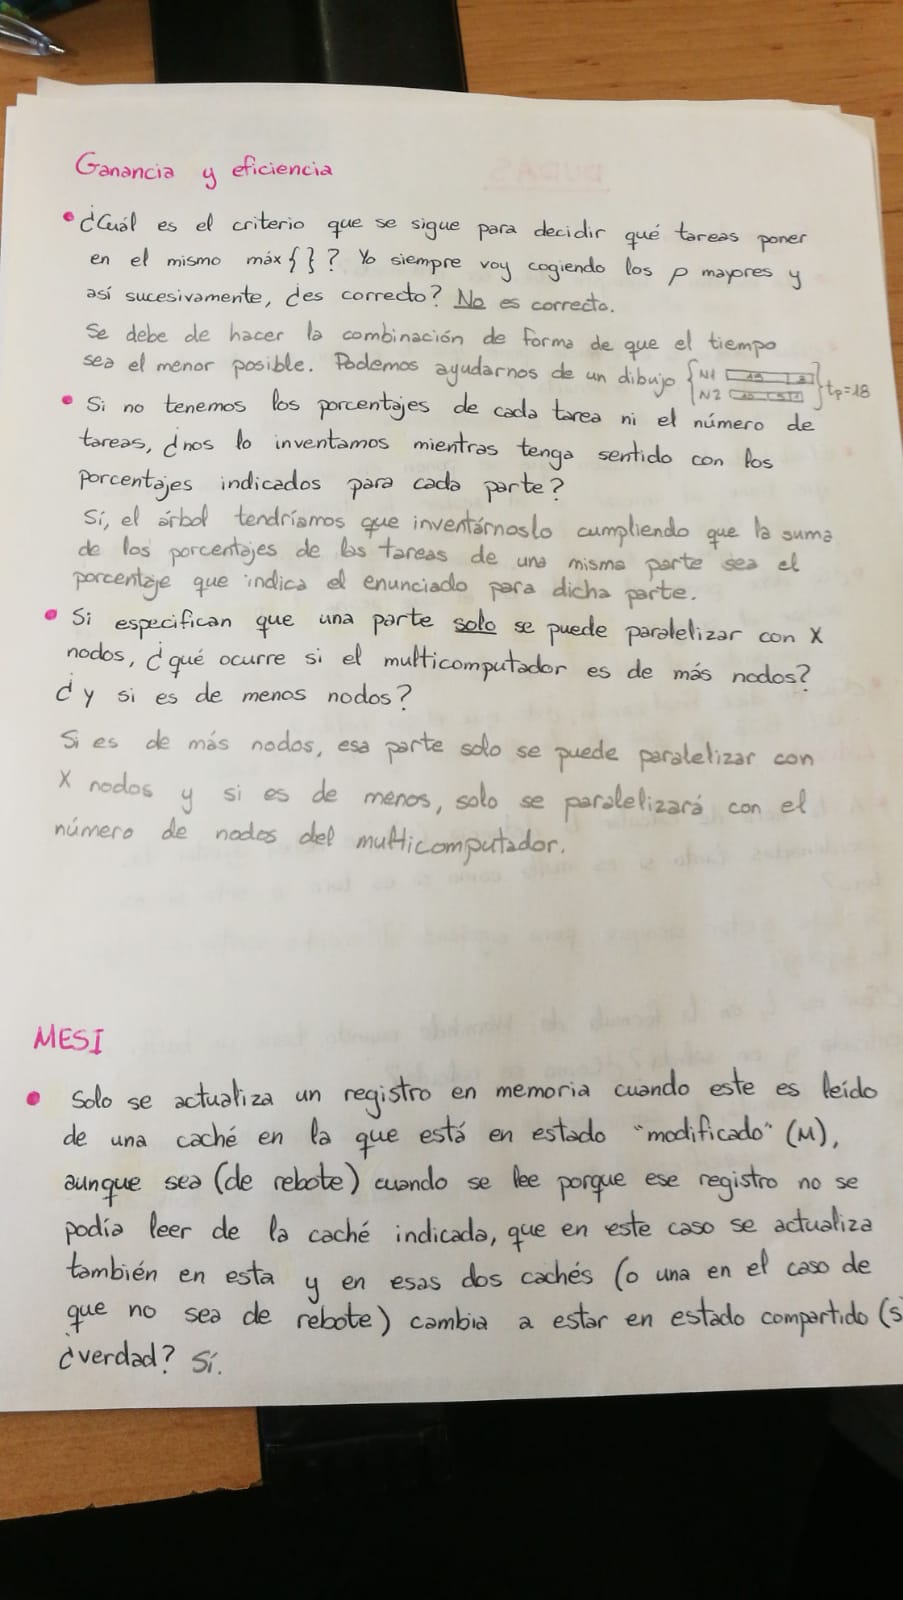 Ganancia y eficiencia
• ¿Cuál es el criterio que se sigue para decidir qué tareas poner
en el mismo máx { } ? Yo siempre voy cogiendo los p mayores y
así sucesivamente, ¿es correcto? No es correcto.
Se debe de hacer la combinación de forma de que el tiempo
sea el menor posible. Podemos ayudarnos de un dibujo { N1
N2 } tp=18
• Si no tenemos los porcentajes de cada tarea ni el número de
tareas, ¿nos lo inventamos mientras tenga sentido con los
porcentajes indicados para cada parte?
Sí, el árbol tendríamos que inventárnoslo cumpliendo que la suma
de los porcentajes de las tareas de una misma parte sea el
porcentaje que indica el enunciado para dicha parte.
• Si especifican que una parte solo se puede paralelizar con X
nodos, ¿qué ocurre si el multicomputador es de más nodos?
¿y si es de menos nodos?
Si es de más nodos, esa parte solo se puede paralelizar con
X nodos y si es de menos, solo se paralelizará con el
número de nodos del multicomputador.
MESI
• Solo se actualiza un registro en memoria cuando este es leído
de una caché en la que está en estado "modificado" (M),
aunque sea (de rebote) cuando se lee porque ese registro no se
podía leer de la caché indicada, que en este caso se actualiza
también en esta y en esas dos cachés (o una en el caso de
que no sea de rebote) cambia a estar en estado compartido (S
¿verdad? Sí.